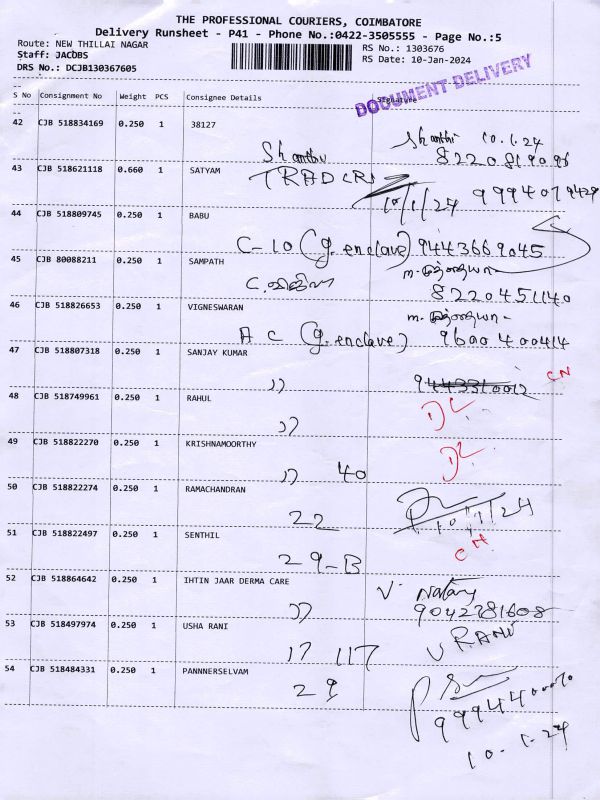 THE PROFESSIONAL COURIERS, COIMBATORE
Delivery Runsheet - P41 - Phone No.:0422-3505555 - Page No.:5
Route: NEW THILLAI NAGAR
RS No.: 1303676
Staff: JACOBS
RS Date: 10-Jan-2024
DRS No.: DCJB130367605
DOCUMENT DELIVERY
S No Consignment No Weight PCS Consignee Details Signature
42 CJB 518834169 0.250 1 38127
Shanthi 10.1.24
8220819096
43 CJB 518621118 0.660 1 SATYAM
TRADERS
10/1/24
44 CJB 518809745 0.250 1 BABU
C-10 (G.enclave) 9443669045
45 CJB 80088211 0.250 1 SAMPATH
8220451140
46 CJB 518826653 0.250 1 VIGNESWARAN
A C (G.enclave) 9600400414
47 CJB 518807318 0.250 1 SANJAY KUMAR
CN
48 CJB 518749961 0.250 1 RAHUL
DL
49 CJB 518822270 0.250 1 KRISHNAMOORTHY
40
DL
50 CJB 518822274 0.250 1 RAMACHANDRAN
22
10/1/24
51 CJB 518822497 0.250 1 SENTHIL
CN
29-B
52 CJB 518864642 0.250 1 IHTIN JAAR DERMA CARE
9042781608
53 CJB 518497974 0.250 1 USHA RANI
U RANI
17 117
54 CJB 518484331 0.250 1 PANNNERSELVAM
29
10.1.24